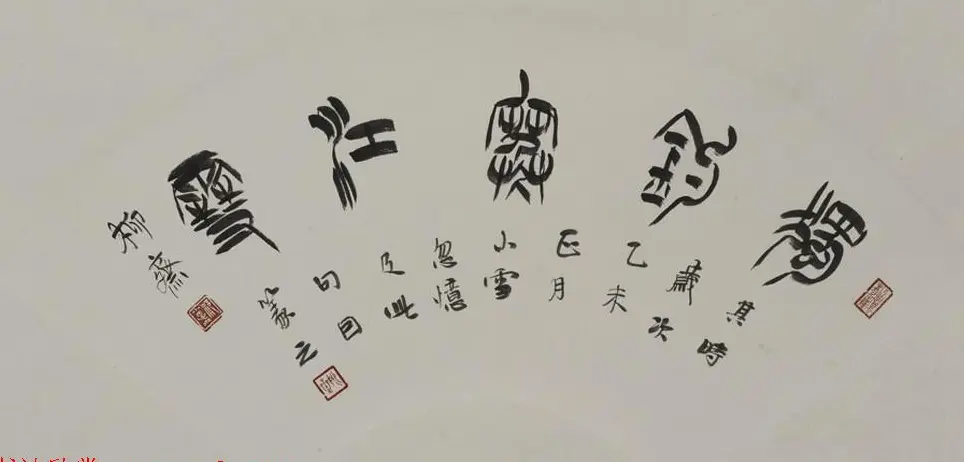 獨釣寒江雪
其時
歲次
乙未
正月
小雪
忽憶
及此
句囙
篆之
柳齋